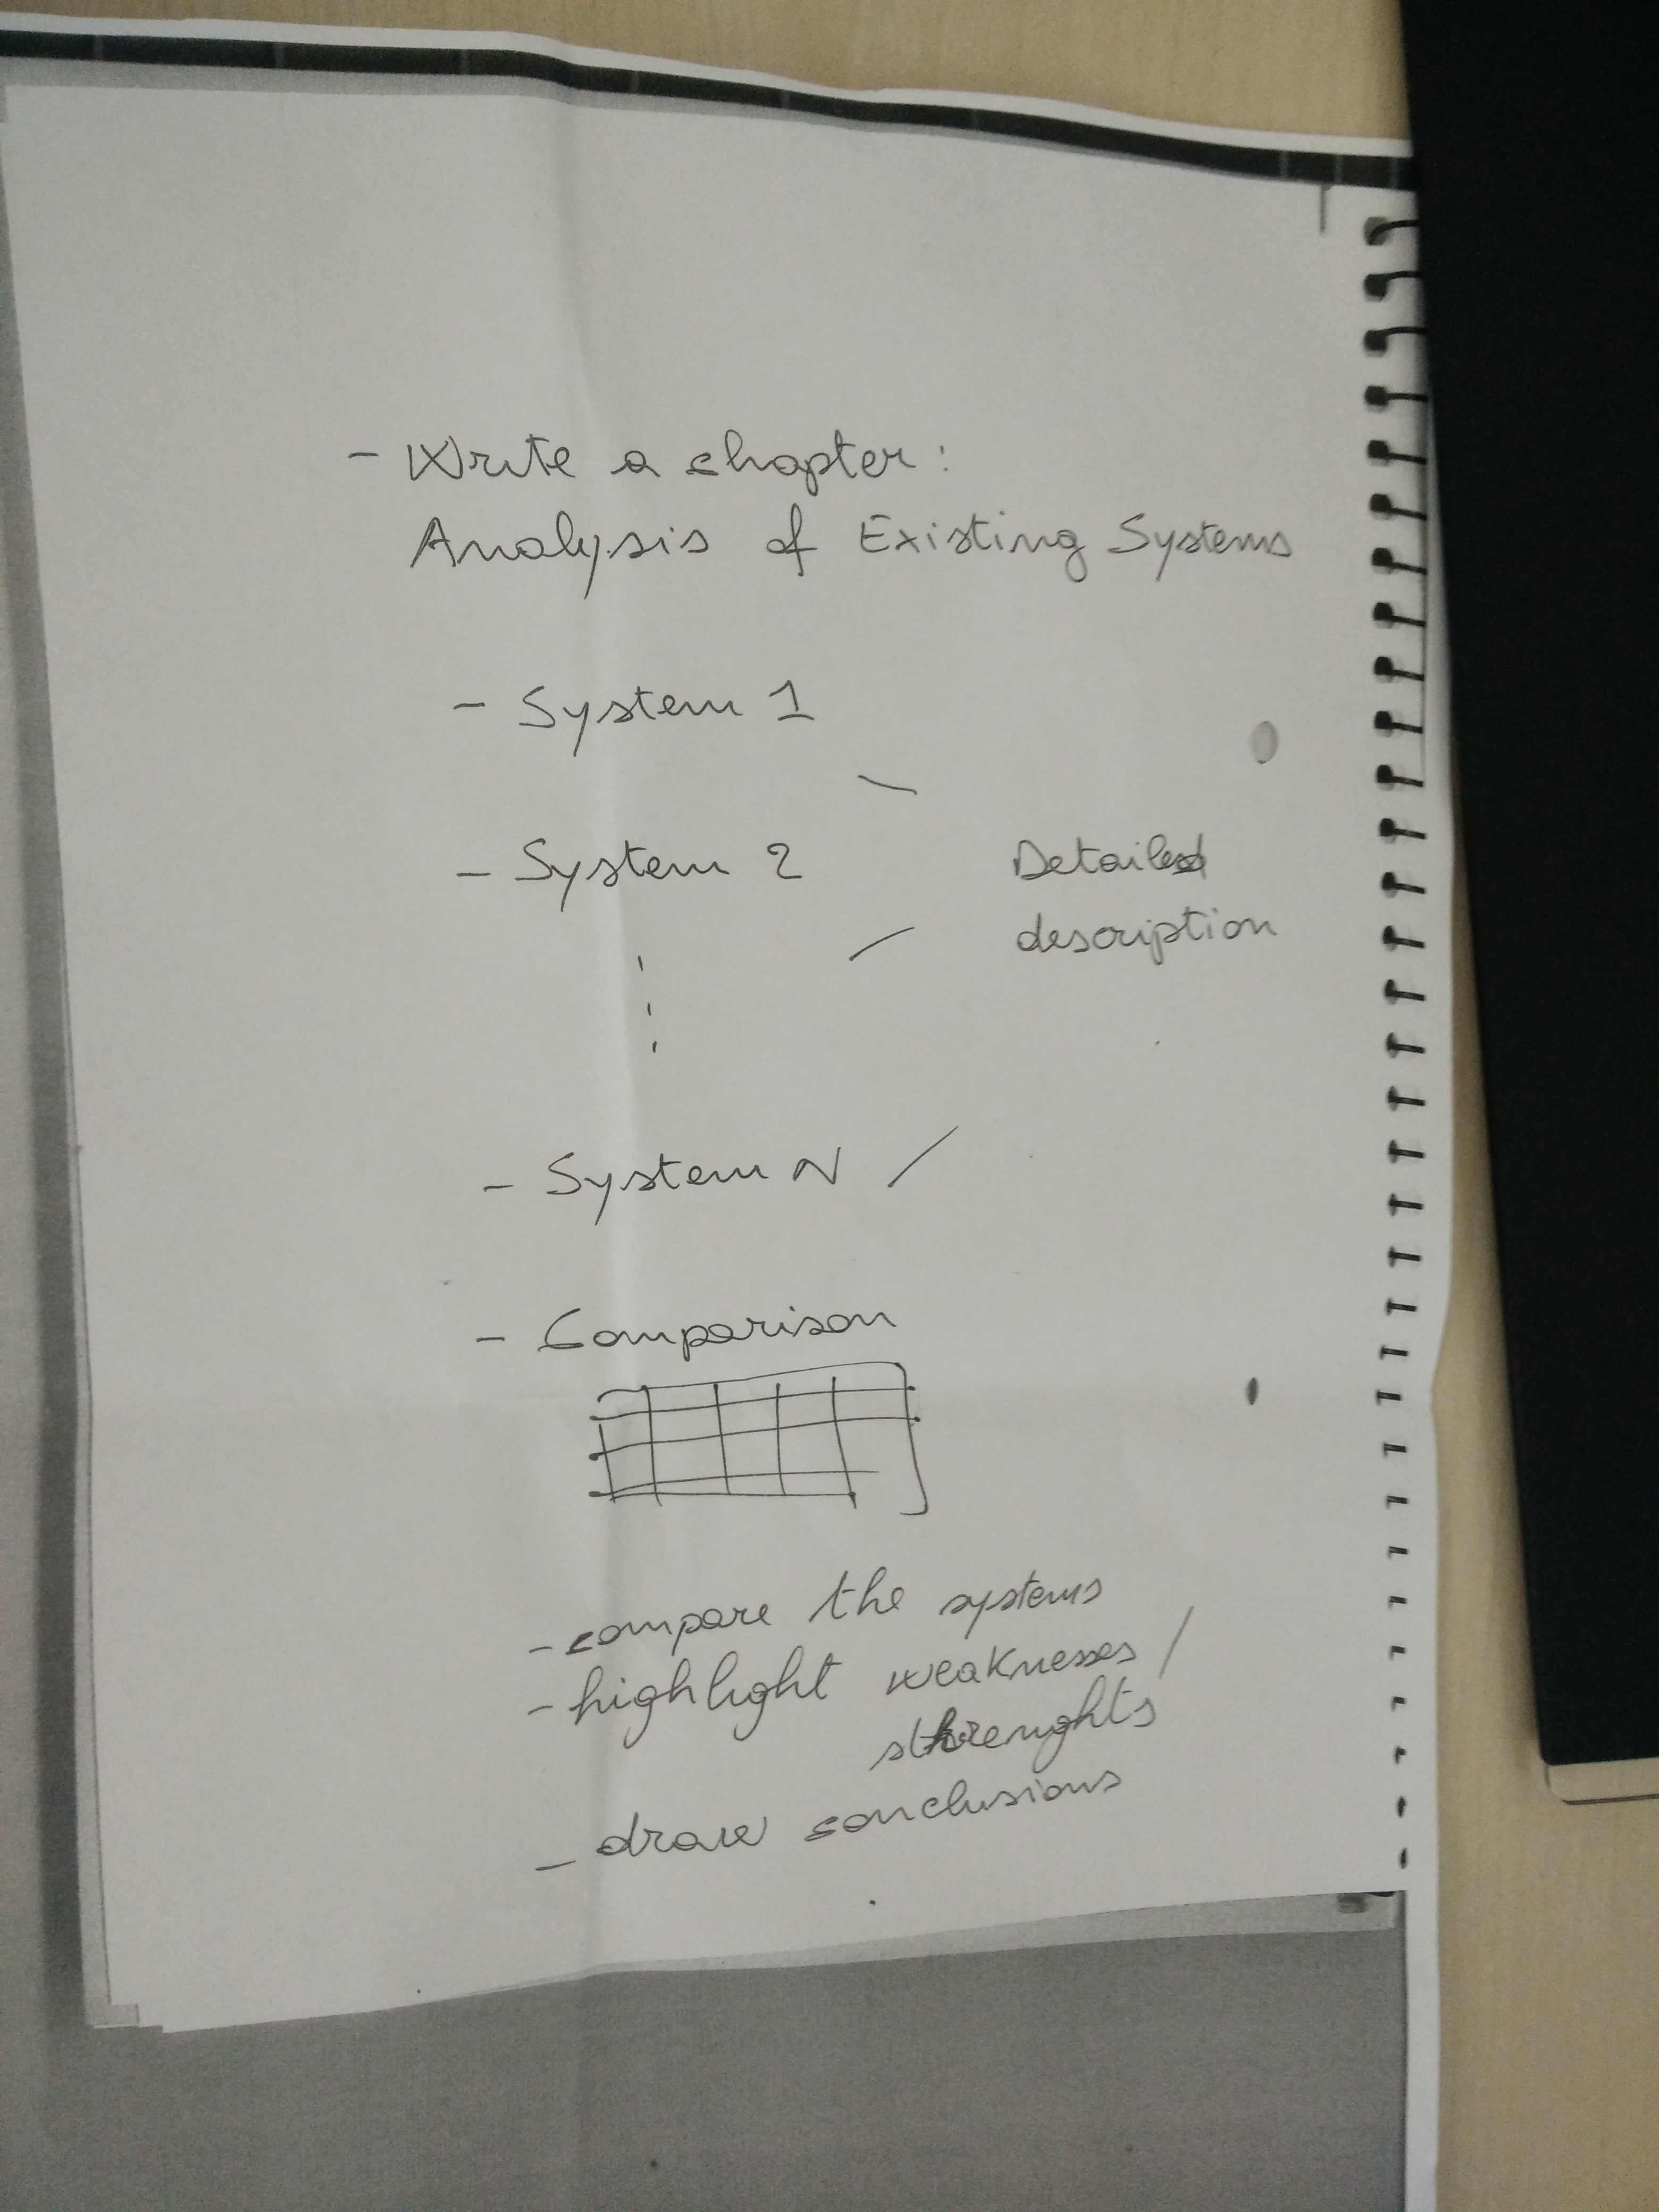 - Write a chapter:
Analysis of Existing Systems
- System 1
- System 2
Detailed
description
- System N
- Comparison
- compare the systems
- highlight weaknesses /
strenghts
- draw conclusions